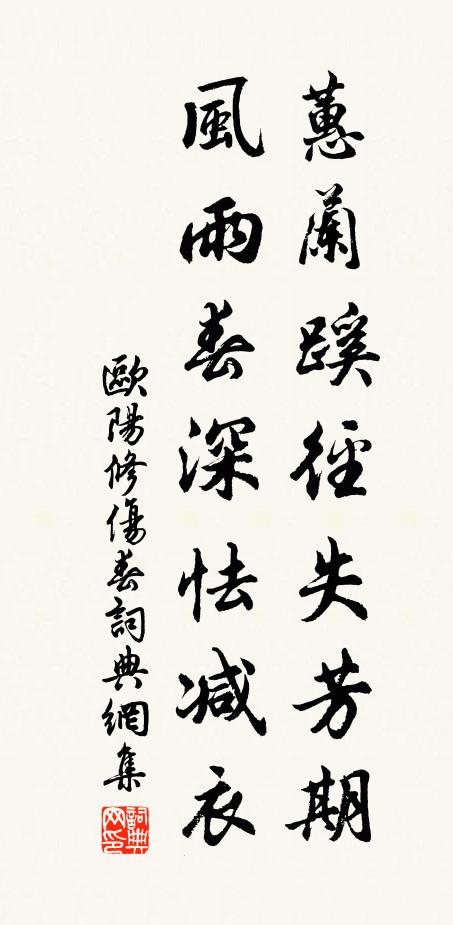 蕙蘭蹊徑失芳期
風雨春深怯减衣
歐陽修傷春詞典網集
詞典网印